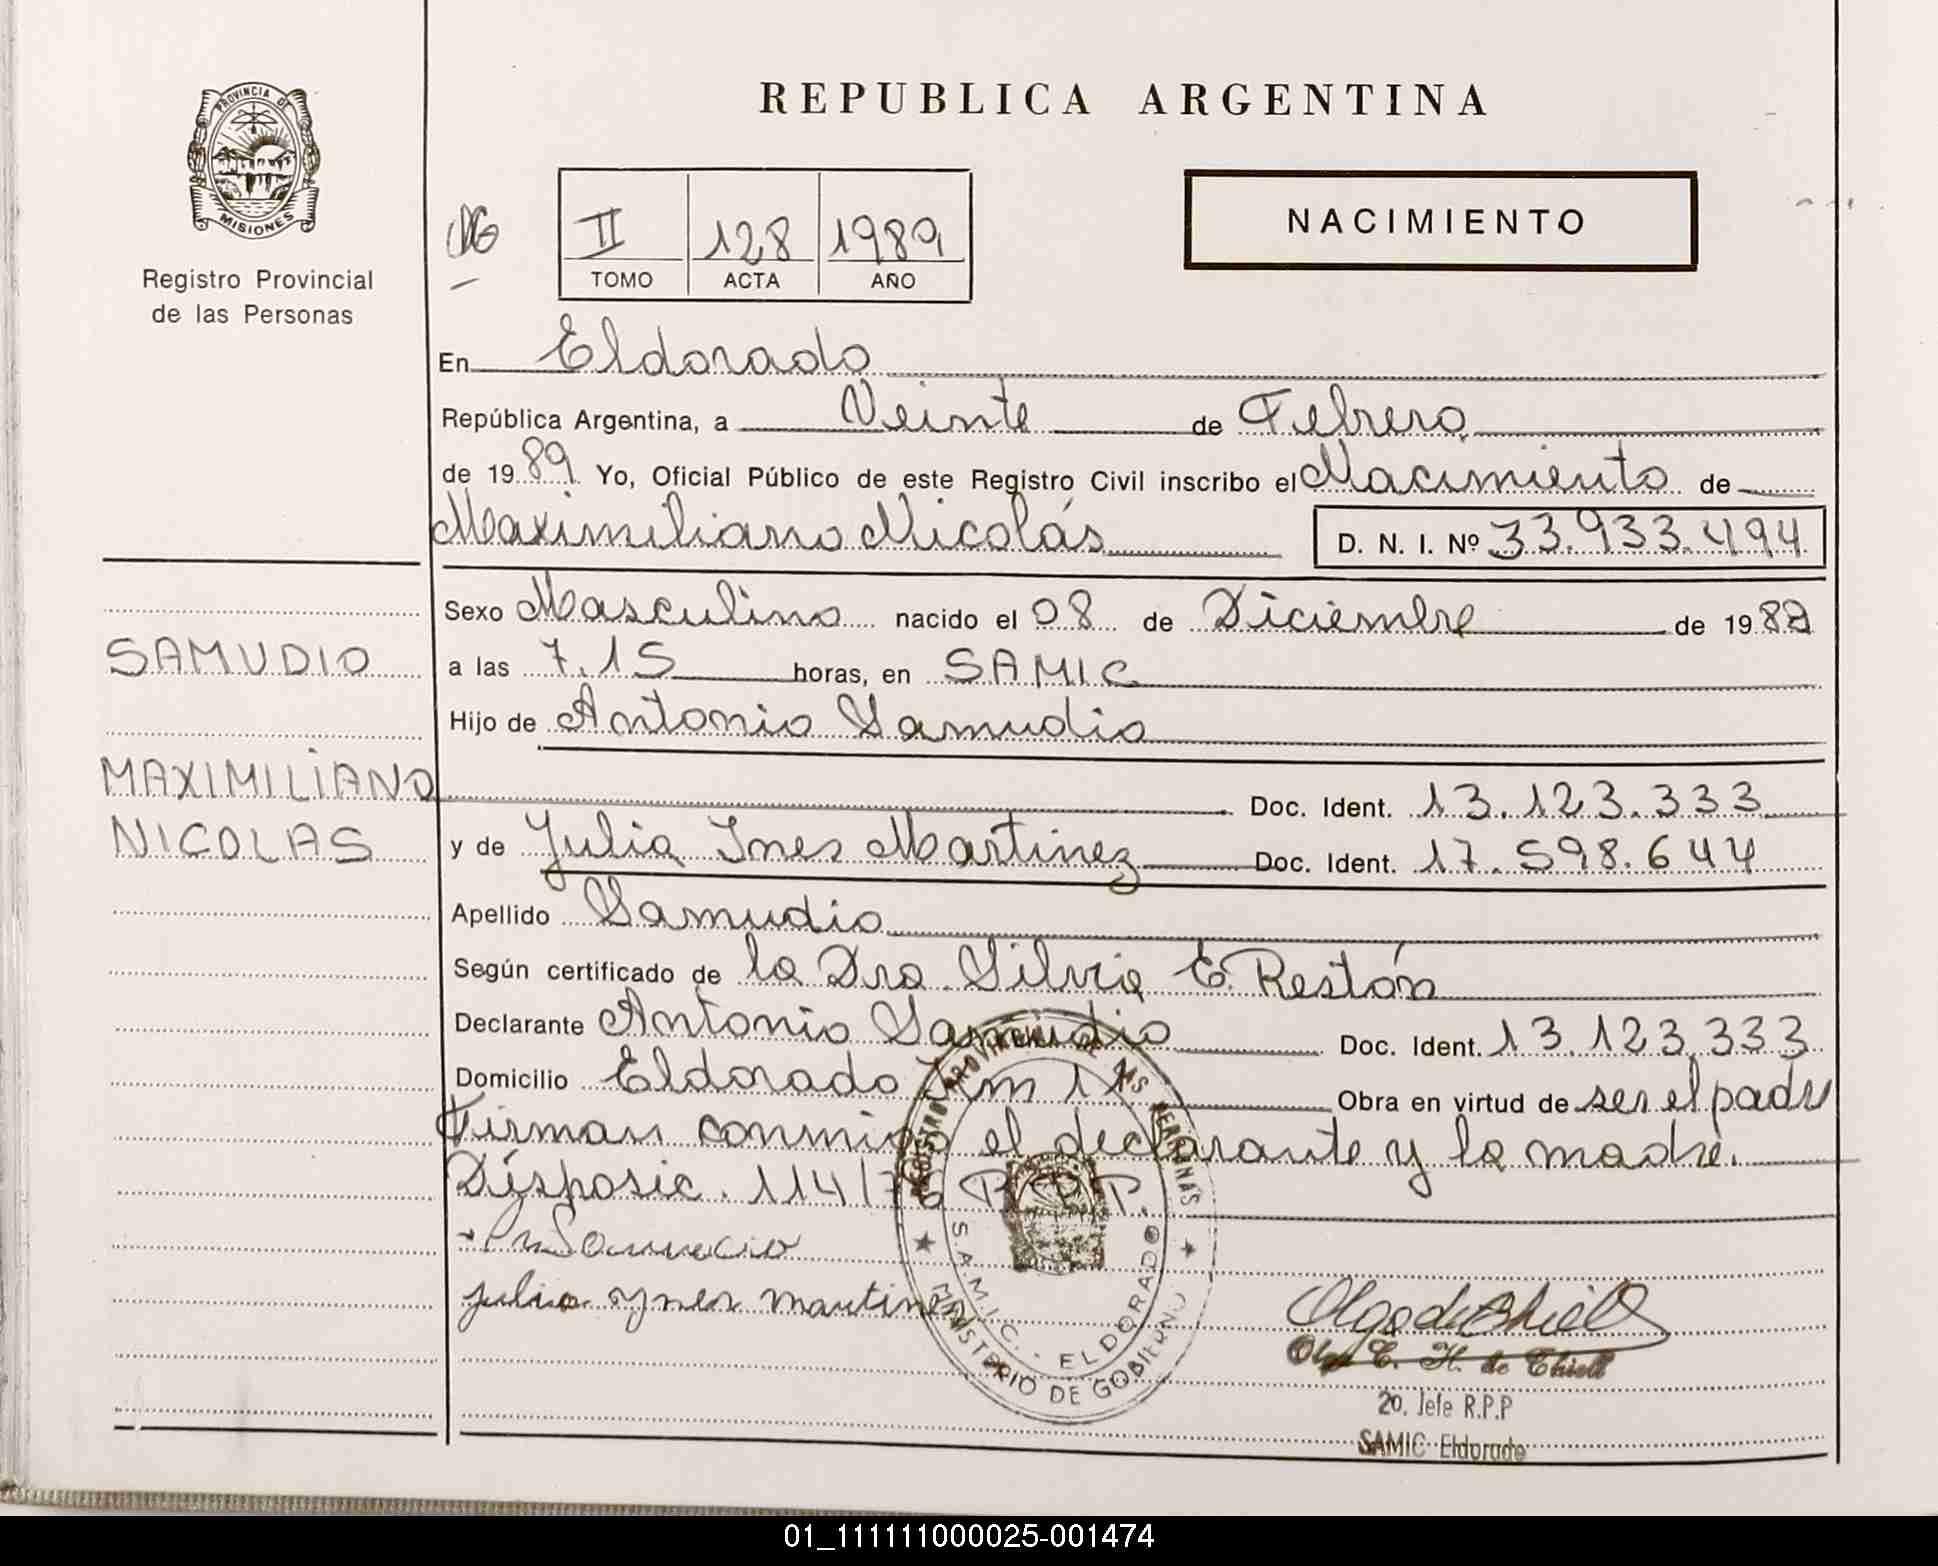 PROVINCIA DE
MISIONES
Registro Provincial
de las Personas
REPUBLICA ARGENTINA
II 128 1989
TOMO ACTA AÑO
NACIMIENTO
En Eldorado
República Argentina, a Veinte de Febrero
de 1989 Yo, Oficial Público de este Registro Civil inscribo el Nacimiento de
Maximiliano Nicolás D. N. I. Nº 33.933.494
Sexo Masculino nacido el 08 de Diciembre de 1988
SAMUDIO
a las 7.15 horas, en SAMIC
Hijo de Antonio Samudio
MAXIMILIANO
Doc. Ident. 13.123.333
NICOLAS
y de Julia Ines Martinez Doc. Ident. 17.598.644
Apellido Samudio
Según certificado de la Dra. Silvia E. Restón
Declarante Antonio Samudio Doc. Ident. 13.123.333
Domicilio Eldorado Km 11 Obra en virtud de ser el padre
Firman conmigo el declarante y la madre.
Disposic. 114/76 R.P.P.
julia ynes martinez
REGISTRO PROVINCIAL DE LAS PERSONAS
S.A.M.I.C. - ELDORADO
MINISTERIO DE GOBIERNO
Olga E. H. de Thiell
20. Jefe R.P.P
SAMIC Eldorado
01_111111000025-001474